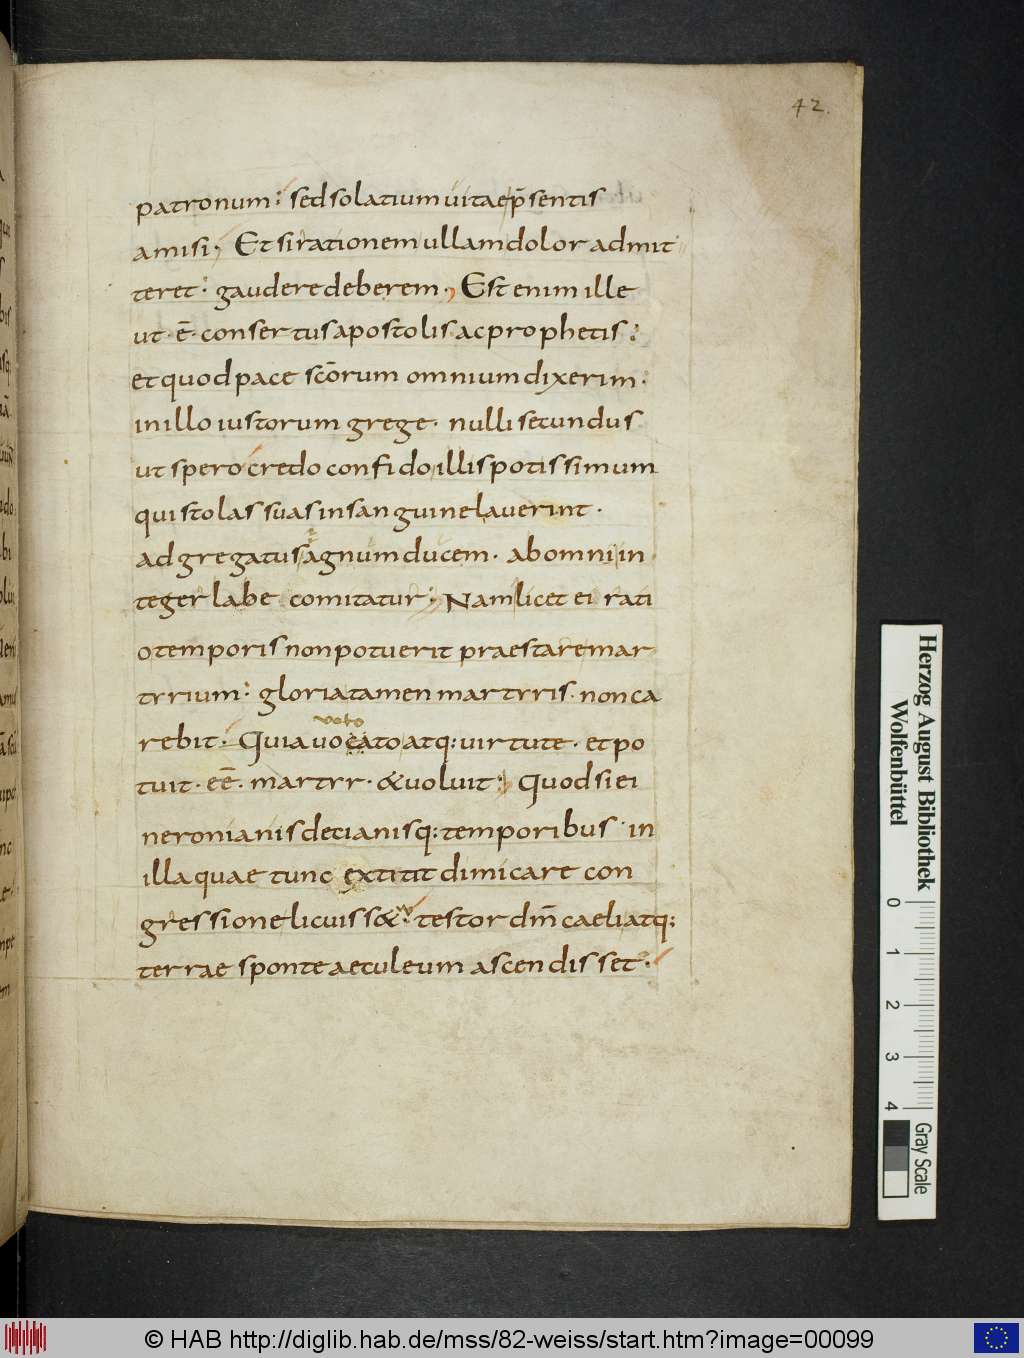 42.
patronum : sed solatium uitae p̄sentis
amisi ; Et si rationem ullam dolor admit
teret : gaudere deberem ·, Est enim ille
ut · ē · consertus apostolis · ac prophetis :
et quod pace scōrum omnium dixerim ·
in illo iustorum grege · nulli secundus
ut spero credo confido illis potissimum
qui stolas suas in sanguine lauerint ·
adgregatus agnum ducem · ab omni in
teger labe comitatur : Nam licet ei rati
o temporis non potuerit praestare mar
tyrium : gloria tamen martyris · non ca
uoto
rebit · Quia uocato atq: uirtute · et po
tuit · eē · martyr · & uoluit : Quod si ei
neronianis decianisq: temporibus · in
illa quae tunc extitit dimicare con
gressione licuiss& : testor dm̄ caeli atq:
terrae sponte aeculeum ascendisset ·
Herzog August Bibliothek
Wolfenbüttel
0 1 2 3 4
Gray Scale
© HAB http://diglib.hab.de/mss/82-weiss/start.htm?image=00099